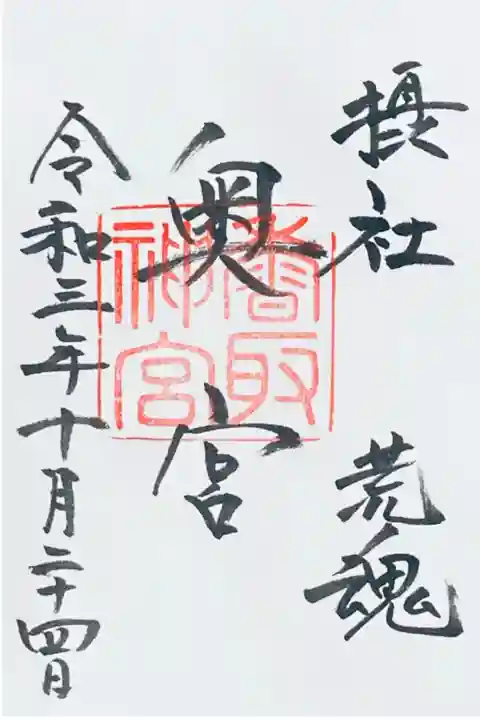 摂社 荒魂
奥宮
香取神宮
令和三年十月二十四日